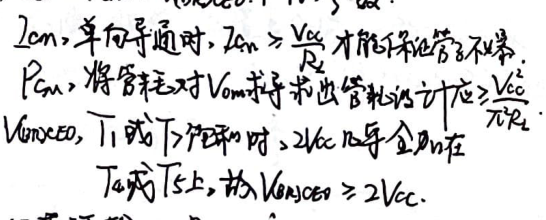 Icm, 单向导通时, Icm ≥ Vcc/RL 才能保证管子不暴.
Pcm, 将管耗对Vom求导求出管耗的 应≥ Vcc²/π²RL.
V(BR)CEO, T1或T2饱和时, 2Vcc 几乎全加在
T4或T5上, 故V(BR)CEO ≥ 2Vcc.